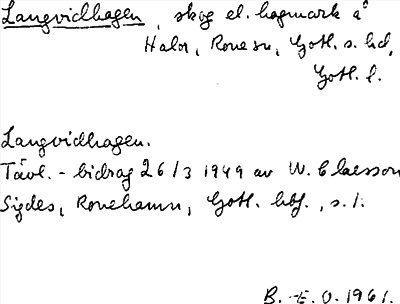 Langvidhagen, skog el. hagmark å
Halor, Rone sn, Gotl. s. hd,
Gotl. l.
Langvidhagen.
Tävl.-bidrag 26/3 1949 av W. Claesson
Sigdes, Ronehamn, Gotl. hbf., s. 1.
B.-E. O. 1961.